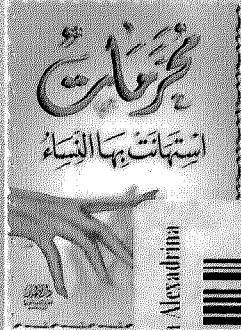 محرمات
استهانت بها النساء
Alexadrina